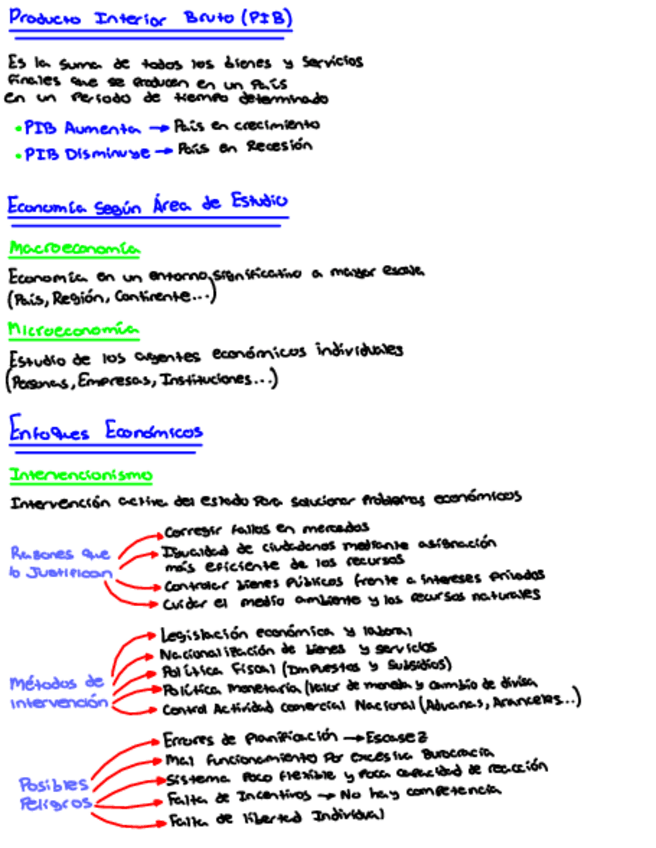 Producto Interior Bruto (PIB)
Es la suma de todos los bienes y servicios
finales que se producen en un país
en un periodo de tiempo determinado
• PIB Aumenta → País en crecimiento
• PIB Disminuye → País en Recesión
Economía según Área de Estudio
Macroeconomía
Economía en un entorno significativo a mayor escala
(País, Región, Continente...)
Microeconomía
Estudio de los agentes económicos individuales
(Personas, Empresas, Instituciones...)
Enfoques Económicos
Intervencionismo
Intervención activa del estado para solucionar problemas económicos
Razones que
lo Justifican
Corregir fallos en mercados
Igualdad de ciudadanos mediante asignación
más eficiente de los recursos
Controlar bienes públicos frente a intereses privados
Cuidar el medio ambiente y los recursos naturales
Métodos de
intervención
Legislación económica y laboral
Nacionalización de bienes y servicios
Política Fiscal (Impuestos y Subsidios)
Política monetaria (valor de moneda y cambio de divisa
Control Actividad comercial Nacional (Aduanas, Aranceles...)
Posibles
Peligros
Errores de Planificación → Escasez
Mal funcionamiento por excesiva burocracia
Sistema poco flexible y poca capacidad de reacción
Falta de Incentivos → No hay competencia
Falta de libertad Individual